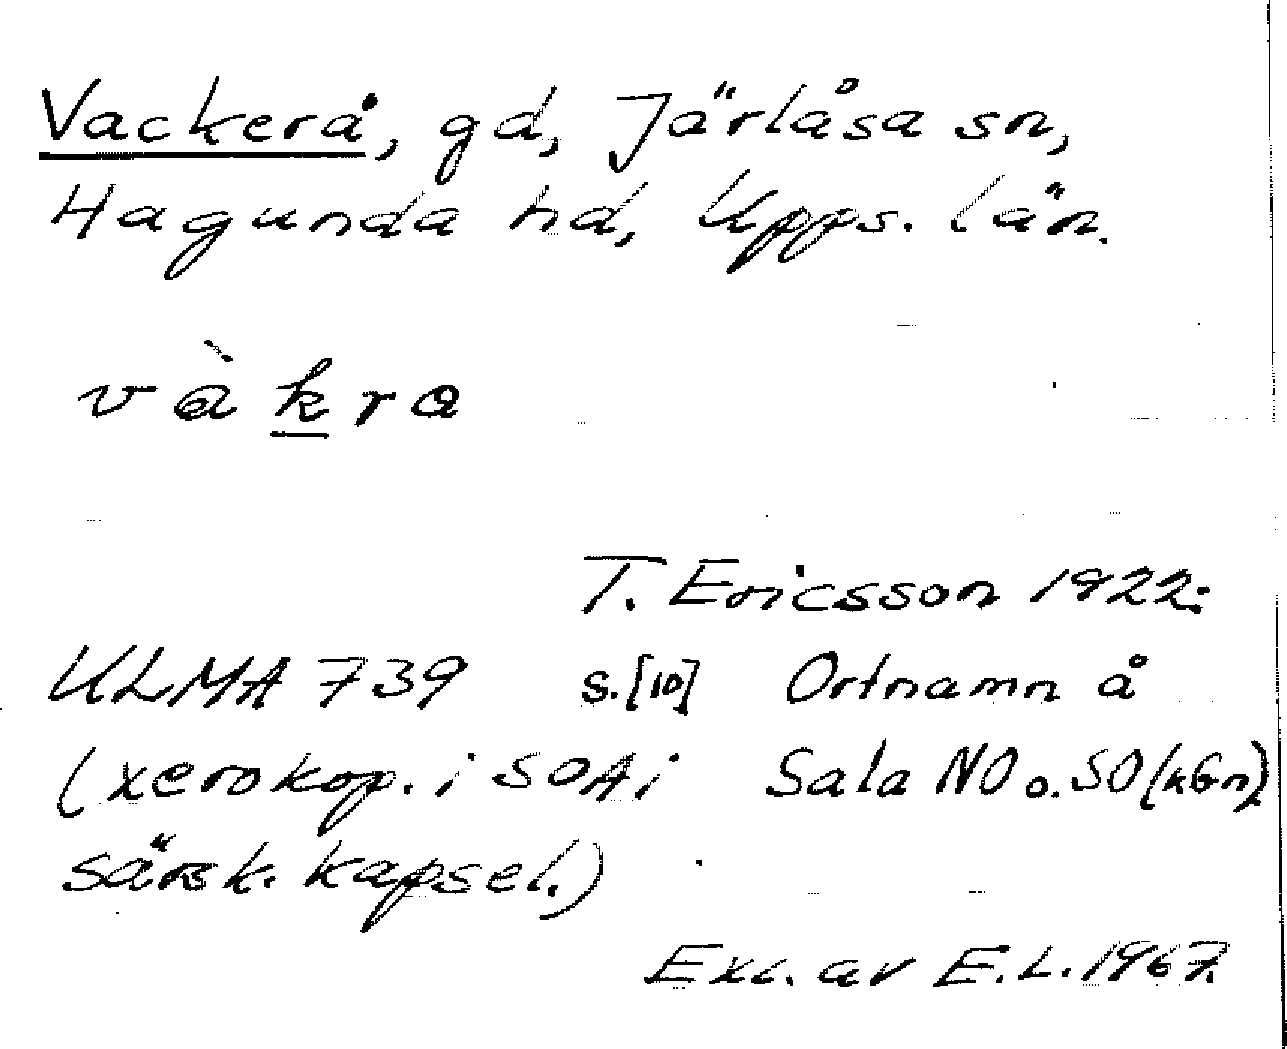 Vackerå, gd, Järlåsa sn,
Hagunda hd, Upps. län.
vàkra
T. Ericsson 1922:
ULMA 739 s.[10] Ortnamn å
(xerokop. i SOA i Sala NO o. SO (kGn)
särsk. kapsel.)
Exc. av E.L. 1967.